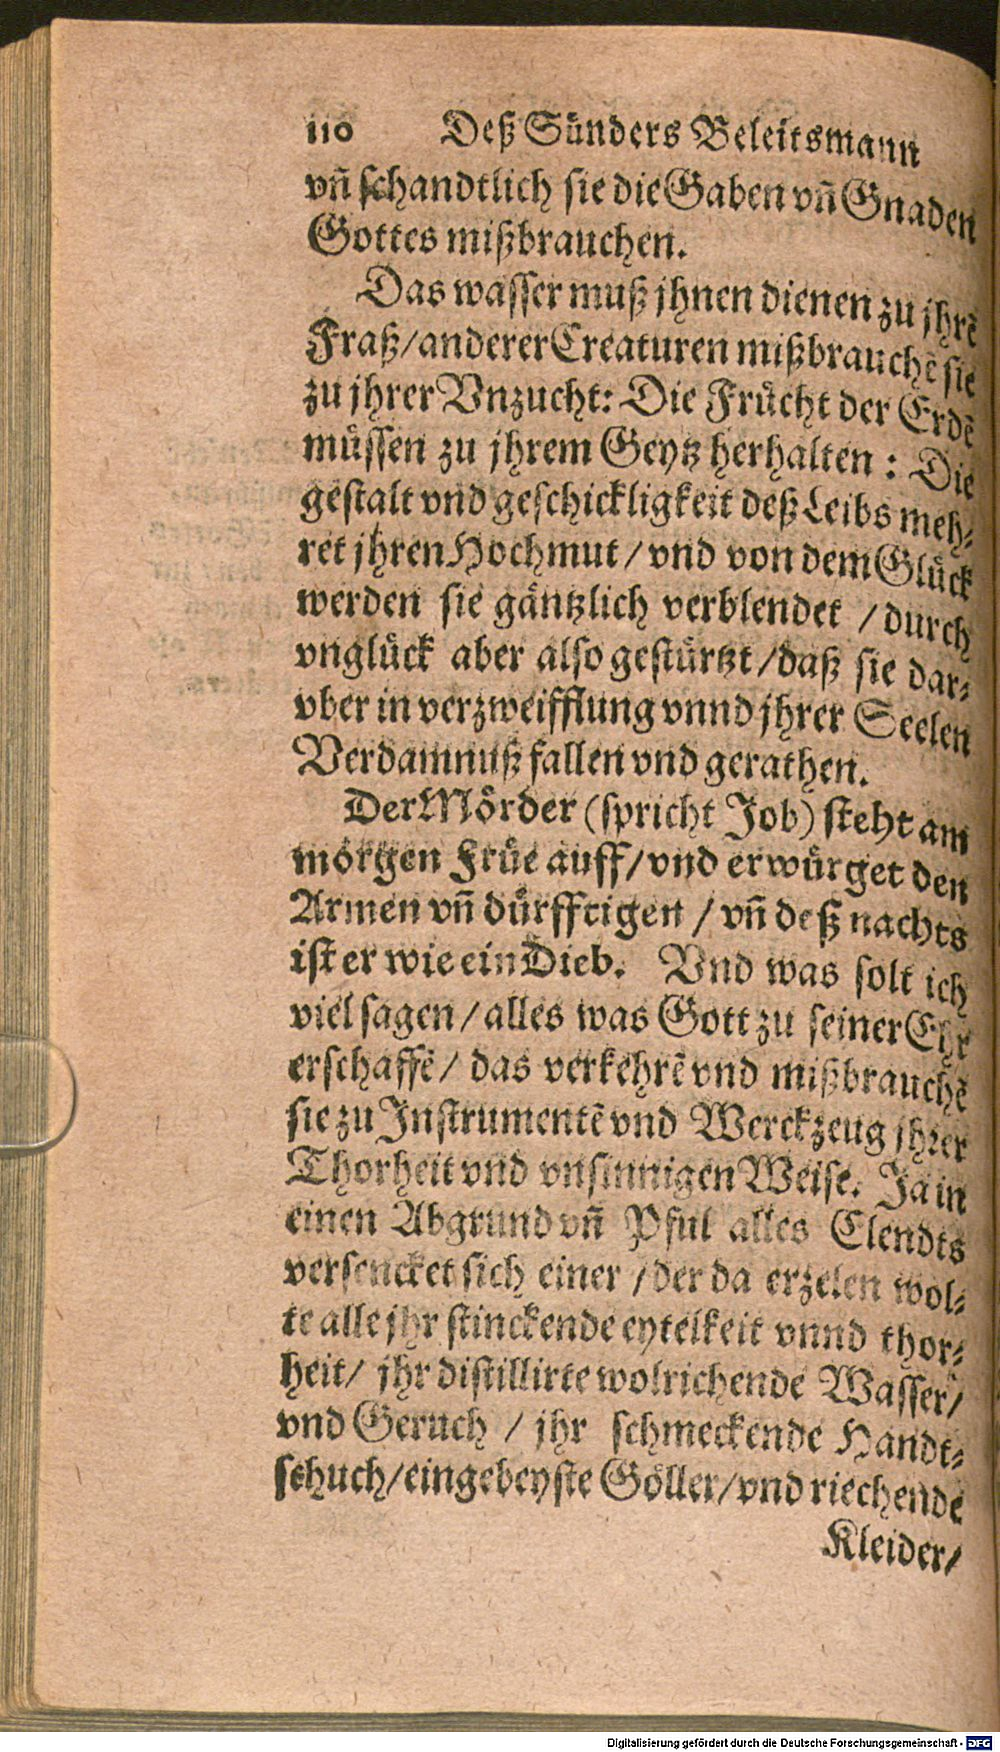 110 Deß Sünders Beleitsmann
vñ schandtlich sie die Gaben vñ Gnaden
Gottes mißbrauchen.
Das wasser muß jhnen dienen zu jhrẽ
Fraß/anderer Creaturen mißbrauchẽ sie
zu jhrer Vnzucht: Die Frücht der Erdẽ
müssen zu jhrem Geytz herhalten : Die
gestalt vnd geschickligkeit deß Leibs meh-
ret jhren Hochmut / vnd von dem Glück
werden sie gäntzlich verblendet / durch
vnglück aber also gestürtzt / daß sie dar-
vber in verzweifflung vnnd jhrer Seelen
Verdamnuß fallen vnd gerathen.
Der Mörder (spricht Job) steht am
morgen Früe auff/vnd erwürget den
Armen vñ dürfftigen / vñ deß nachts
ist er wie ein Dieb. Vnd was solt ich
viel sagen / alles was Gott zu seiner Ehr
erschaffẽ / das verkehrẽ vnd mißbrauchẽ
sie zu Instrumentẽ vnd Werckzeug jhrer
Thorheit vnd vnsinnigen Weise. Ja in
einen Abgrund vñ Pful alles Elendts
versencket sich einer / der da erzelen wol-
te alle jhr stinckende eytelkeit vnnd thor-
heit/ jhr distillirte wolrichende Wasser/
vnd Geruch / jhr schmeckende Handt-
schuch/eingebeyste Göller/vnd riechende
Kleider/
Digitalisierung gefördert durch die Deutsche Forschungsgemeinschaft - DFG